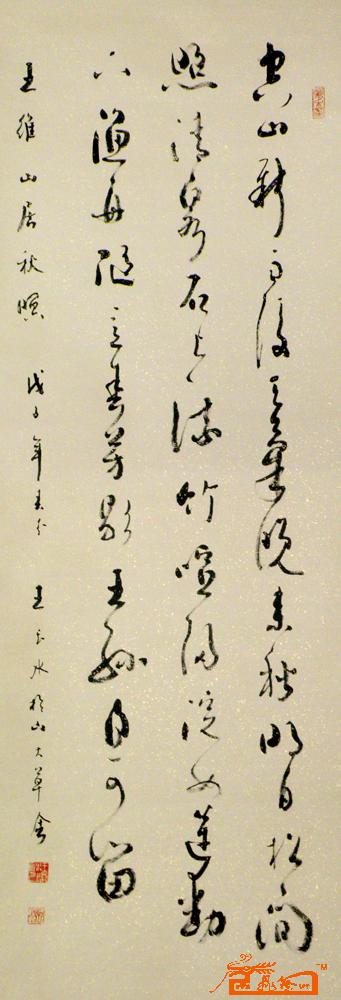 空山新雨後天氣晚来秋明月松間
照清泉石上流竹喧歸浣女蓮動
下漁舟隨意春芳歇王孫自可留
王維山居秋暝 戊子年春分 王水於山大草舍